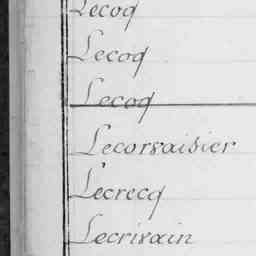 Lecoq
Lecoq
Lecoq
Lecorsaisier
Lecrecq
Lecrivain